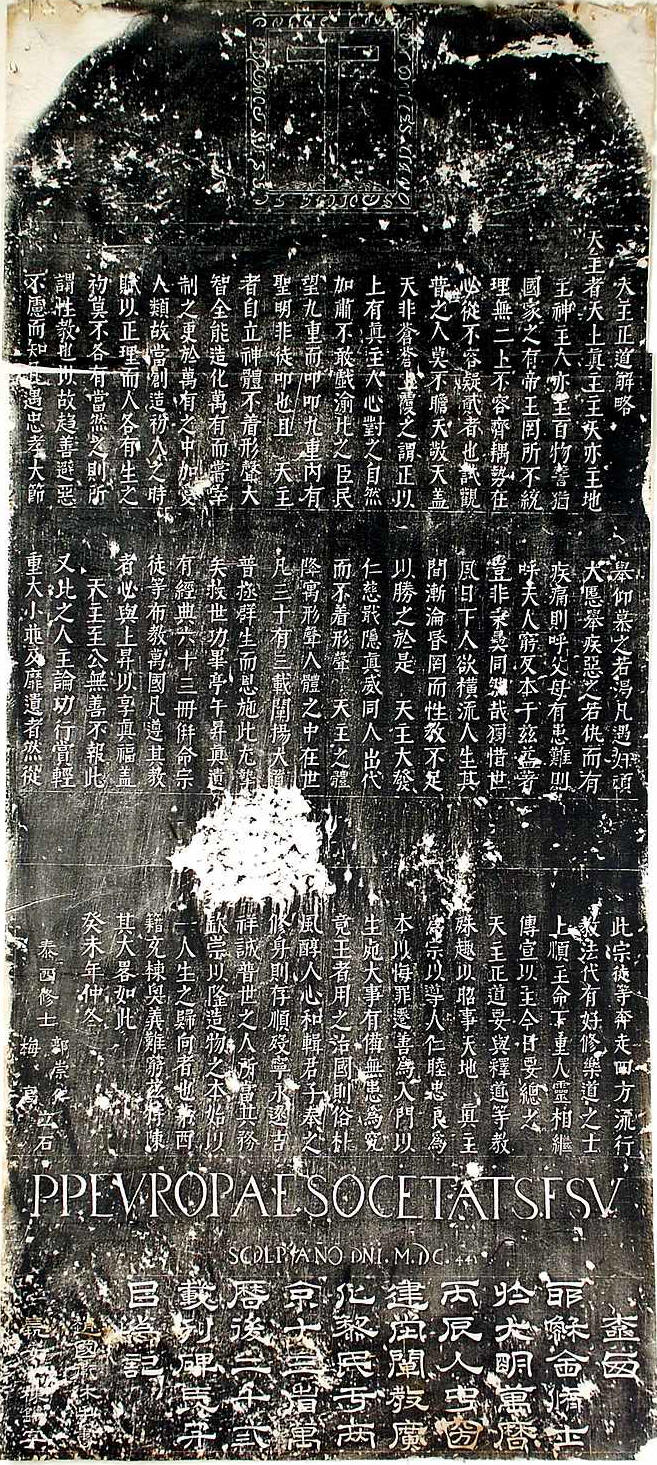 天主正道解略
天主者天上眞主主天亦主地
主神主人亦主百物譬猶
國家之有帝王罔所不統
理無二上不容齊耦勢在
必從不容疑貳者也試觀
普之人莫不瞻天敬天蓋
天非蒼蒼霞之謂正以
上有眞主人心對之自然
加肅不敢戲渝比之臣民
望九重而叩叩九重內有
聖明非徒叩也且 天主
者自立神體不着形聲大
智全能造化萬有而常宰
制之更於萬有之中加愛
人類故當創造初人之時
賦以正理而人各有生之
初莫不各有當然之則所
謂性教也以故趨善避惡
不慮而知也遇忠孝大節
舉仰慕之若渴凡遇奸頑
大慝舉疾惡之若仇而有
疾痛則呼父母有患難則
呼天人窮反本于兹益著
豈非秉彝同然哉獨惜世
風日下人欲橫流人生其
間漸淪昏罔而性教不足
以勝之於是 天主大發
仁慈隱真威同人出代
而不着形聲 天主之體
降寓形聲人體之中在世
凡三十有三載闡揚大道
普拯群生而恩施此尤
矣捄世功畢亭午昇真遺
有經典六十三冊併命宗
徒等布教萬國凡遵其教
者必與上昇以享真福蓋
天主至公無善不報此
又比之人主論功行賞輕
重大小並及靡遺者然從
此宗徒等奔走四方流行
教法代有好修樂道之士
上順主命下重人靈相繼
傳宣以至今日要總之
天主正道要與釋道等教
殊趣以昭事天地 真主
為宗以導人仁睦忠良為
本以悔罪遷善為入門以
生死大事有備無患為究
竟王者用之治國則俗朴
風醇人心和輯君子奉之
修身則存順殁寧永邀吉
祥誠普世之人所當共務
欽崇以隆造物之本始以
一人生之歸向者也第西
籍充棟奧義難窮茲特陳
其大畧如此
癸未年仲冬
泰西修士 郭崇仁
梅 高 立石
PPEVROPAESOCETATSFSV
SCVLP ANO DNI. M.DC.44
耶穌会修士
於大明萬曆
丙辰人中國
建堂闡教廣
化黎民于兩
京十三省萬
曆後二十貳
載列碑
為記